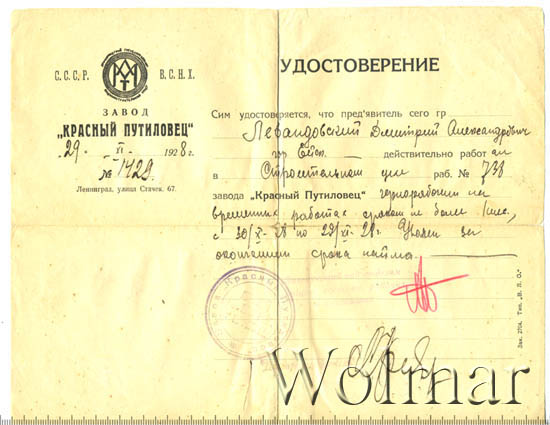 С.С.С.Р. В.С.Н.Х.
ЗАВОД
„КРАСНЫЙ ПУТИЛОВЕЦ"
29 XI 1928 г.
№ 1429
Ленинград, улица Стачек, 67.
УДОСТОВЕРЕНИЕ
Сим удостоверяется, что пред'явитель сего гр
Левандовский Дмитрий Александрович
действительно работ ал
в цех раб. № 738
завода „Красный Путиловец" чернорабочим на
временных работах сроком не более 1 мес.,
с 30/X-28 по 29/XI-28 г. Уволен за
окончанием срока найма.
Зак. 2764. Тип. „В. Л. О."
Wolmar